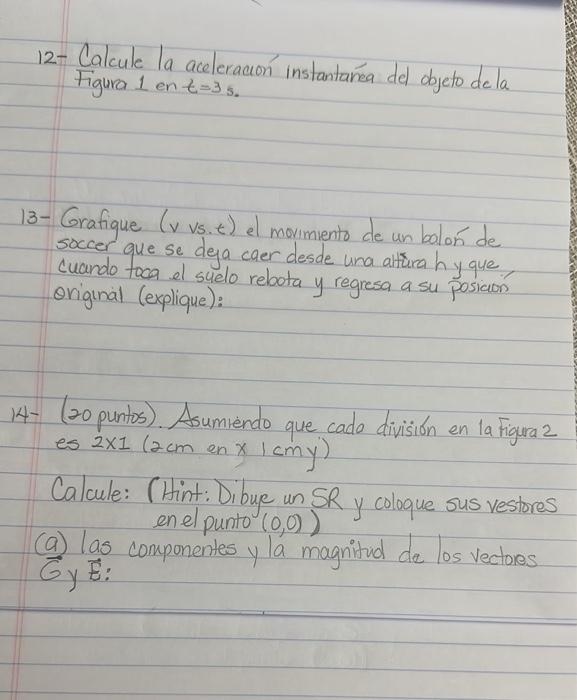 12- Calcule la aceleración instantánea del objeto de la
Figura 1 en t=3 s.
13- Grafique (v vs. t) el movimiento de un balón de
soccer que se deja caer desde una altura h y que
cuando toca el suelo rebota y regresa a su posición
original (explique):
14- (20 puntos). Asumiendo que cada división en la Figura 2
es 2x1 (2cm en x 1cm y)
Calcule: (Hint: Dibuje un SR y coloque sus vestores
en el punto (0,0))
(a) las componentes y la magnitud de los vectores
G y E: